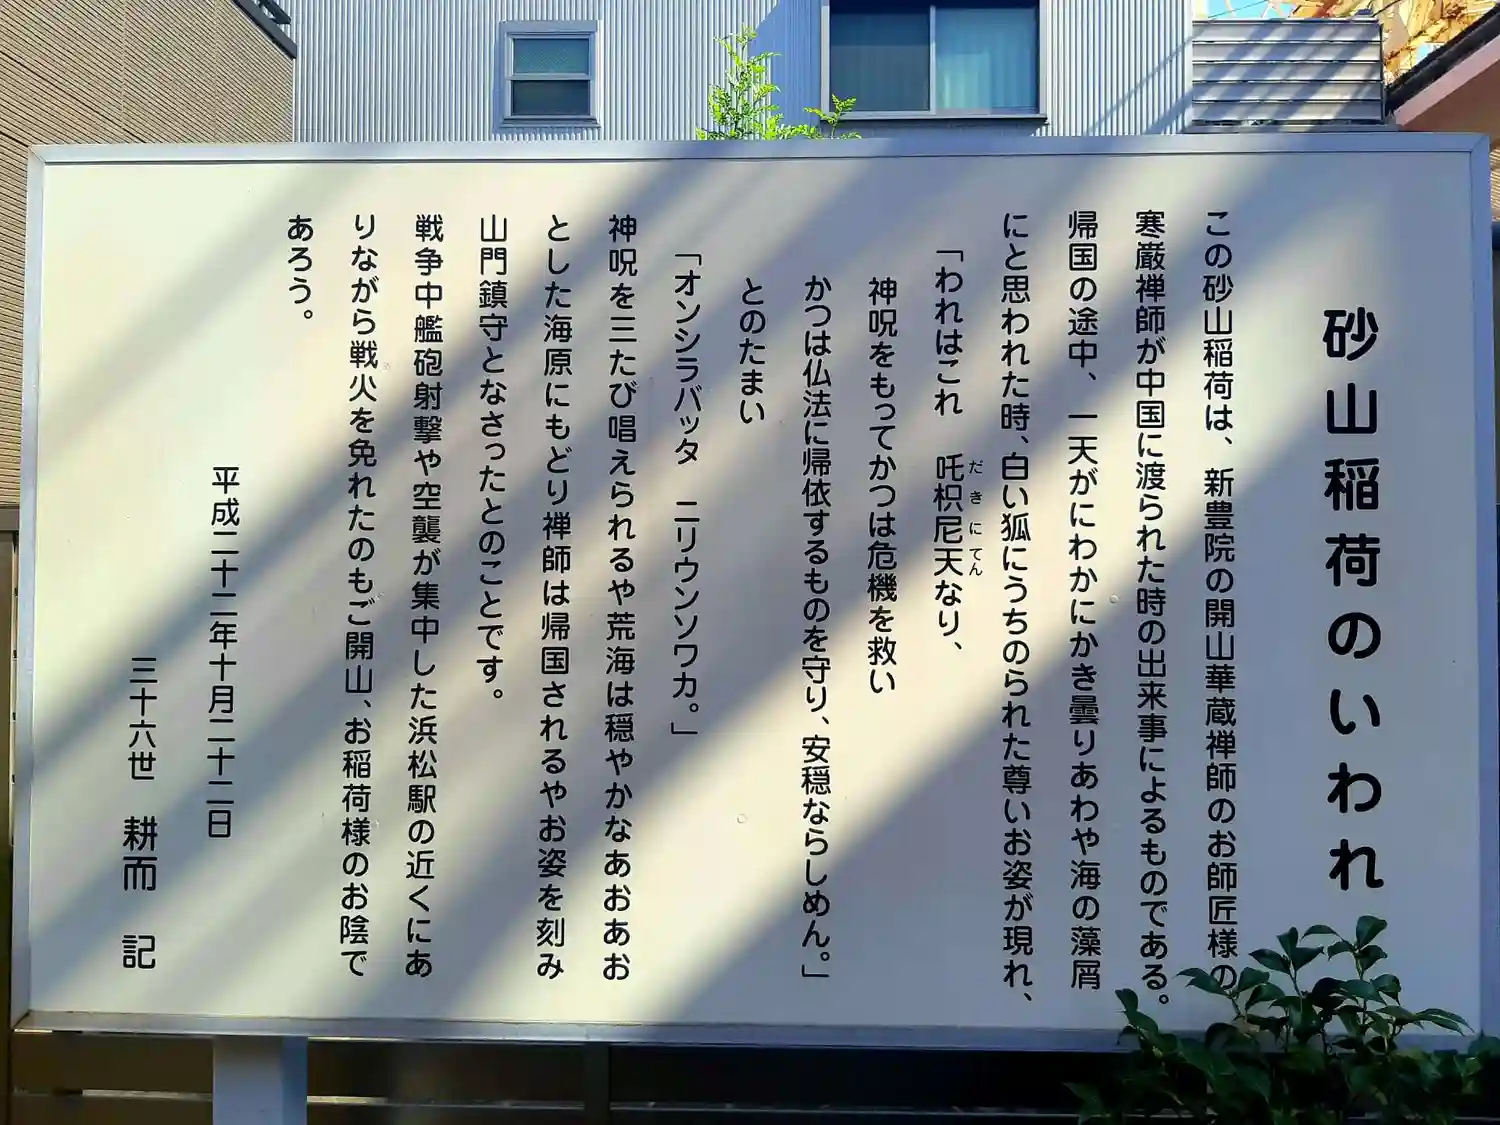 砂山稲荷のいわれ
この砂山稲荷は、新豊院の開山華蔵禅師のお師匠様の
寒巌禅師が中国に渡られた時の出来事によるものである。
帰国の途中、一天がにわかにかき曇りあわや海の藻屑
にと思われた時、白い狐にうちのられた尊いお姿が現れ、
「われはこれ　吒枳尼天なり、
だきにてん
神呪をもってかつは危機を救い
かつは仏法に帰依するものを守り、安穏ならしめん。」
とのたまい
「オンシラバッタ　ニリウンソワカ。」
神呪を三たび唱えられるや荒海は穏やかなあおあお
とした海原にもどり禅師は帰国されるやお姿を刻み
山門鎮守となさったとのことです。
戦争中艦砲射撃や空襲が集中した浜松駅の近くにあ
りながら戦火を免れたのもご開山、お稲荷様のお陰で
あろう。
平成二十二年十月二十二日
三十六世　耕而　記